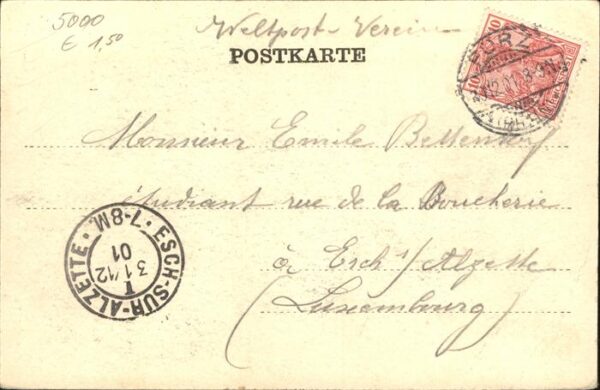 5000
€ 1,50
Weltpost-Verein
POSTKARTE
Monsieur Emile
étudiant rue de la Boucherie
à Esch s/Alzette
(Luxembourg)
ESCH-SUR-ALZETTE · 7-8M ·
31/12
01
I
10
10